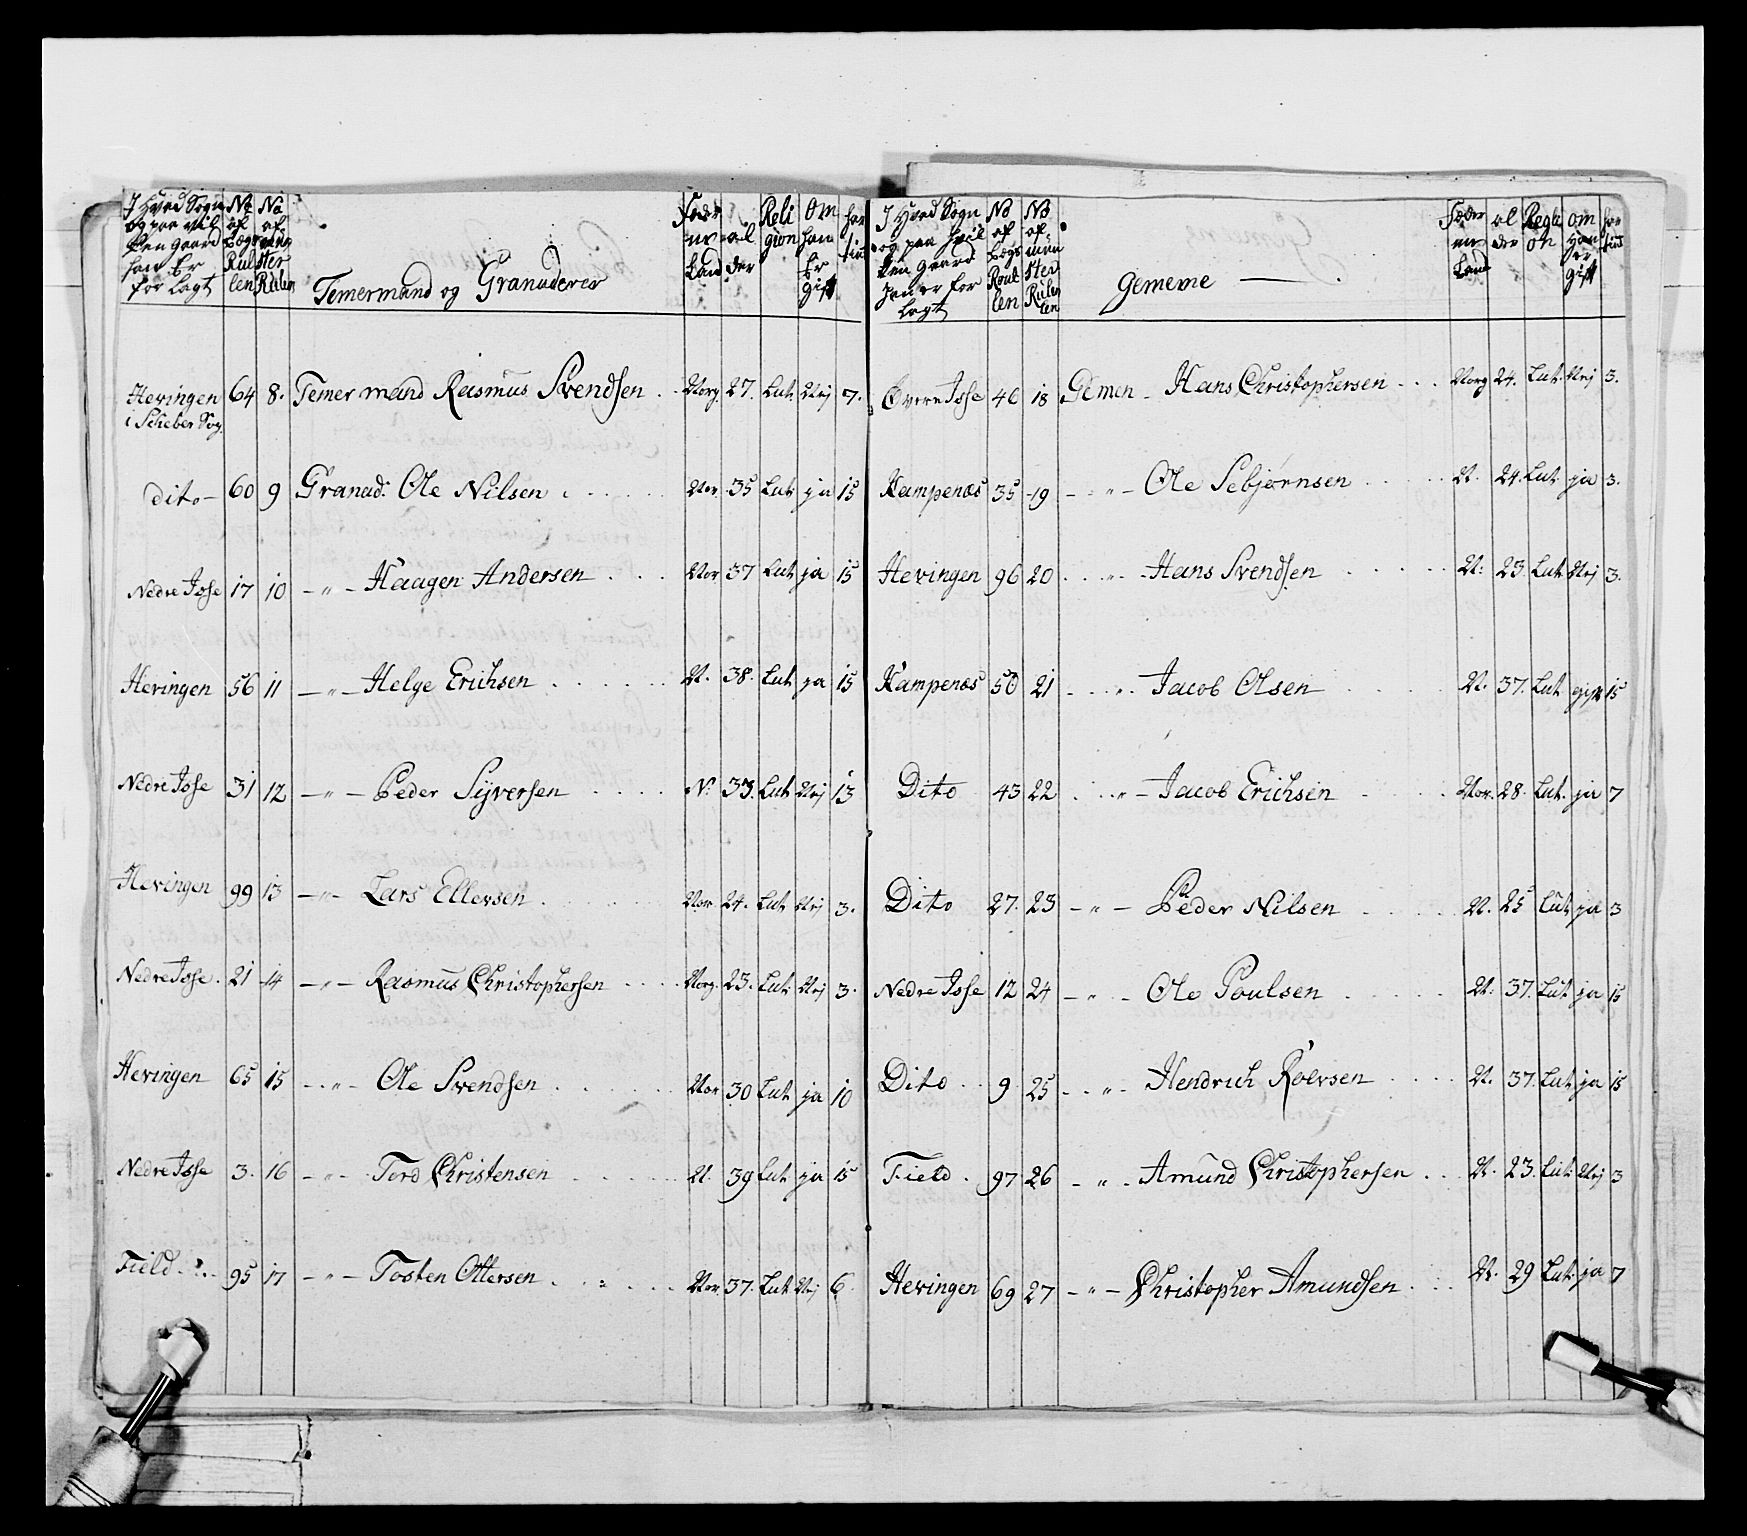 J Hvad Sogn
og paa vil
ken gaard
han Er
for lagt
No
af
Logs
Rul
len
No
af
mün
ster
Rülen
Temermand og Granaderer
Føde
land
al
der
Reli
gion
Om
han
Er
gift
har
tint
Hevingen 64 8. Temer mand Rasmus Svendsen . Norg. 27. Lut. Nej 7.
i Schieber Sog.
Dito - 60 9 Granad: Ole Nilsen . Nor. 35 Lut ja 15
Nedre Josse 17 10 - " - Haagen Andersen . Nor 37 Lut ja 15
Hevingen 56 11 - " - Helge Erichsen . N. 38. Lut ja 15
Nedre Josse 31 12 - " - Peder Syversen . N. 33. Lut Nej 13
Hevingen 99 13 - " - Lars Ellevsen . Nor. 24. Lut Nej 3.
Nedre Josse . 21 14 - " - Rasmus Christophersen . Norg. 23. Lut. Nej 3.
Hevingen 65 15 - " - Ole Svendsen . Nor 30 Lut ja 10
Nedre Josse 3. 16 - " - Tord Christensen . N. 39 Lut ja 15
Field . 95 17 - " - Tosten Ottersen . Nor. 37. Lut Nej 6.
J Hvad Sogn
og paa hvil
ken gaard
Han er for
lagt
No
af
Logs
Roul
len
No
af
mün
ster
Rülen
len
Gemene
Føde
land
al
der
Regli
on
om
Han
er
gift
har
tint
Øvere Josse 46 18 Gemen - Hans Christophersen . Norg 24. Lut. Nej 3.
Kampenæs 35 19 - " - Ole Sebjørnsen . N. 24. Lut ja 3.
Hevingen 96 20 . " - Hans Svendsen . N: 23. Lut Nej 3.
Kampenæs 50 21 . " . Jacob Olsen . N. 37. Lut gift 15
Dito 43 22 . " - Jacob Erichsen . Nor. 28. Lut. ja 7
Dito 27. 23 - " - Peder Nilsen . N. 25 Lut ja 3
Nedre Josse 12 24 - " - Ole Poulsen . N. 37. Lut ja 15
Dito . 9 25 - " - Hendrich Roersen . N. 37. Lut ja 15
Field . 97 26 - " - Amund Christophersen . N. 23. Lut Nej 3
Hevingen 69 27 - " - Christopher Amundsen . N. 29 Lut. ja 7